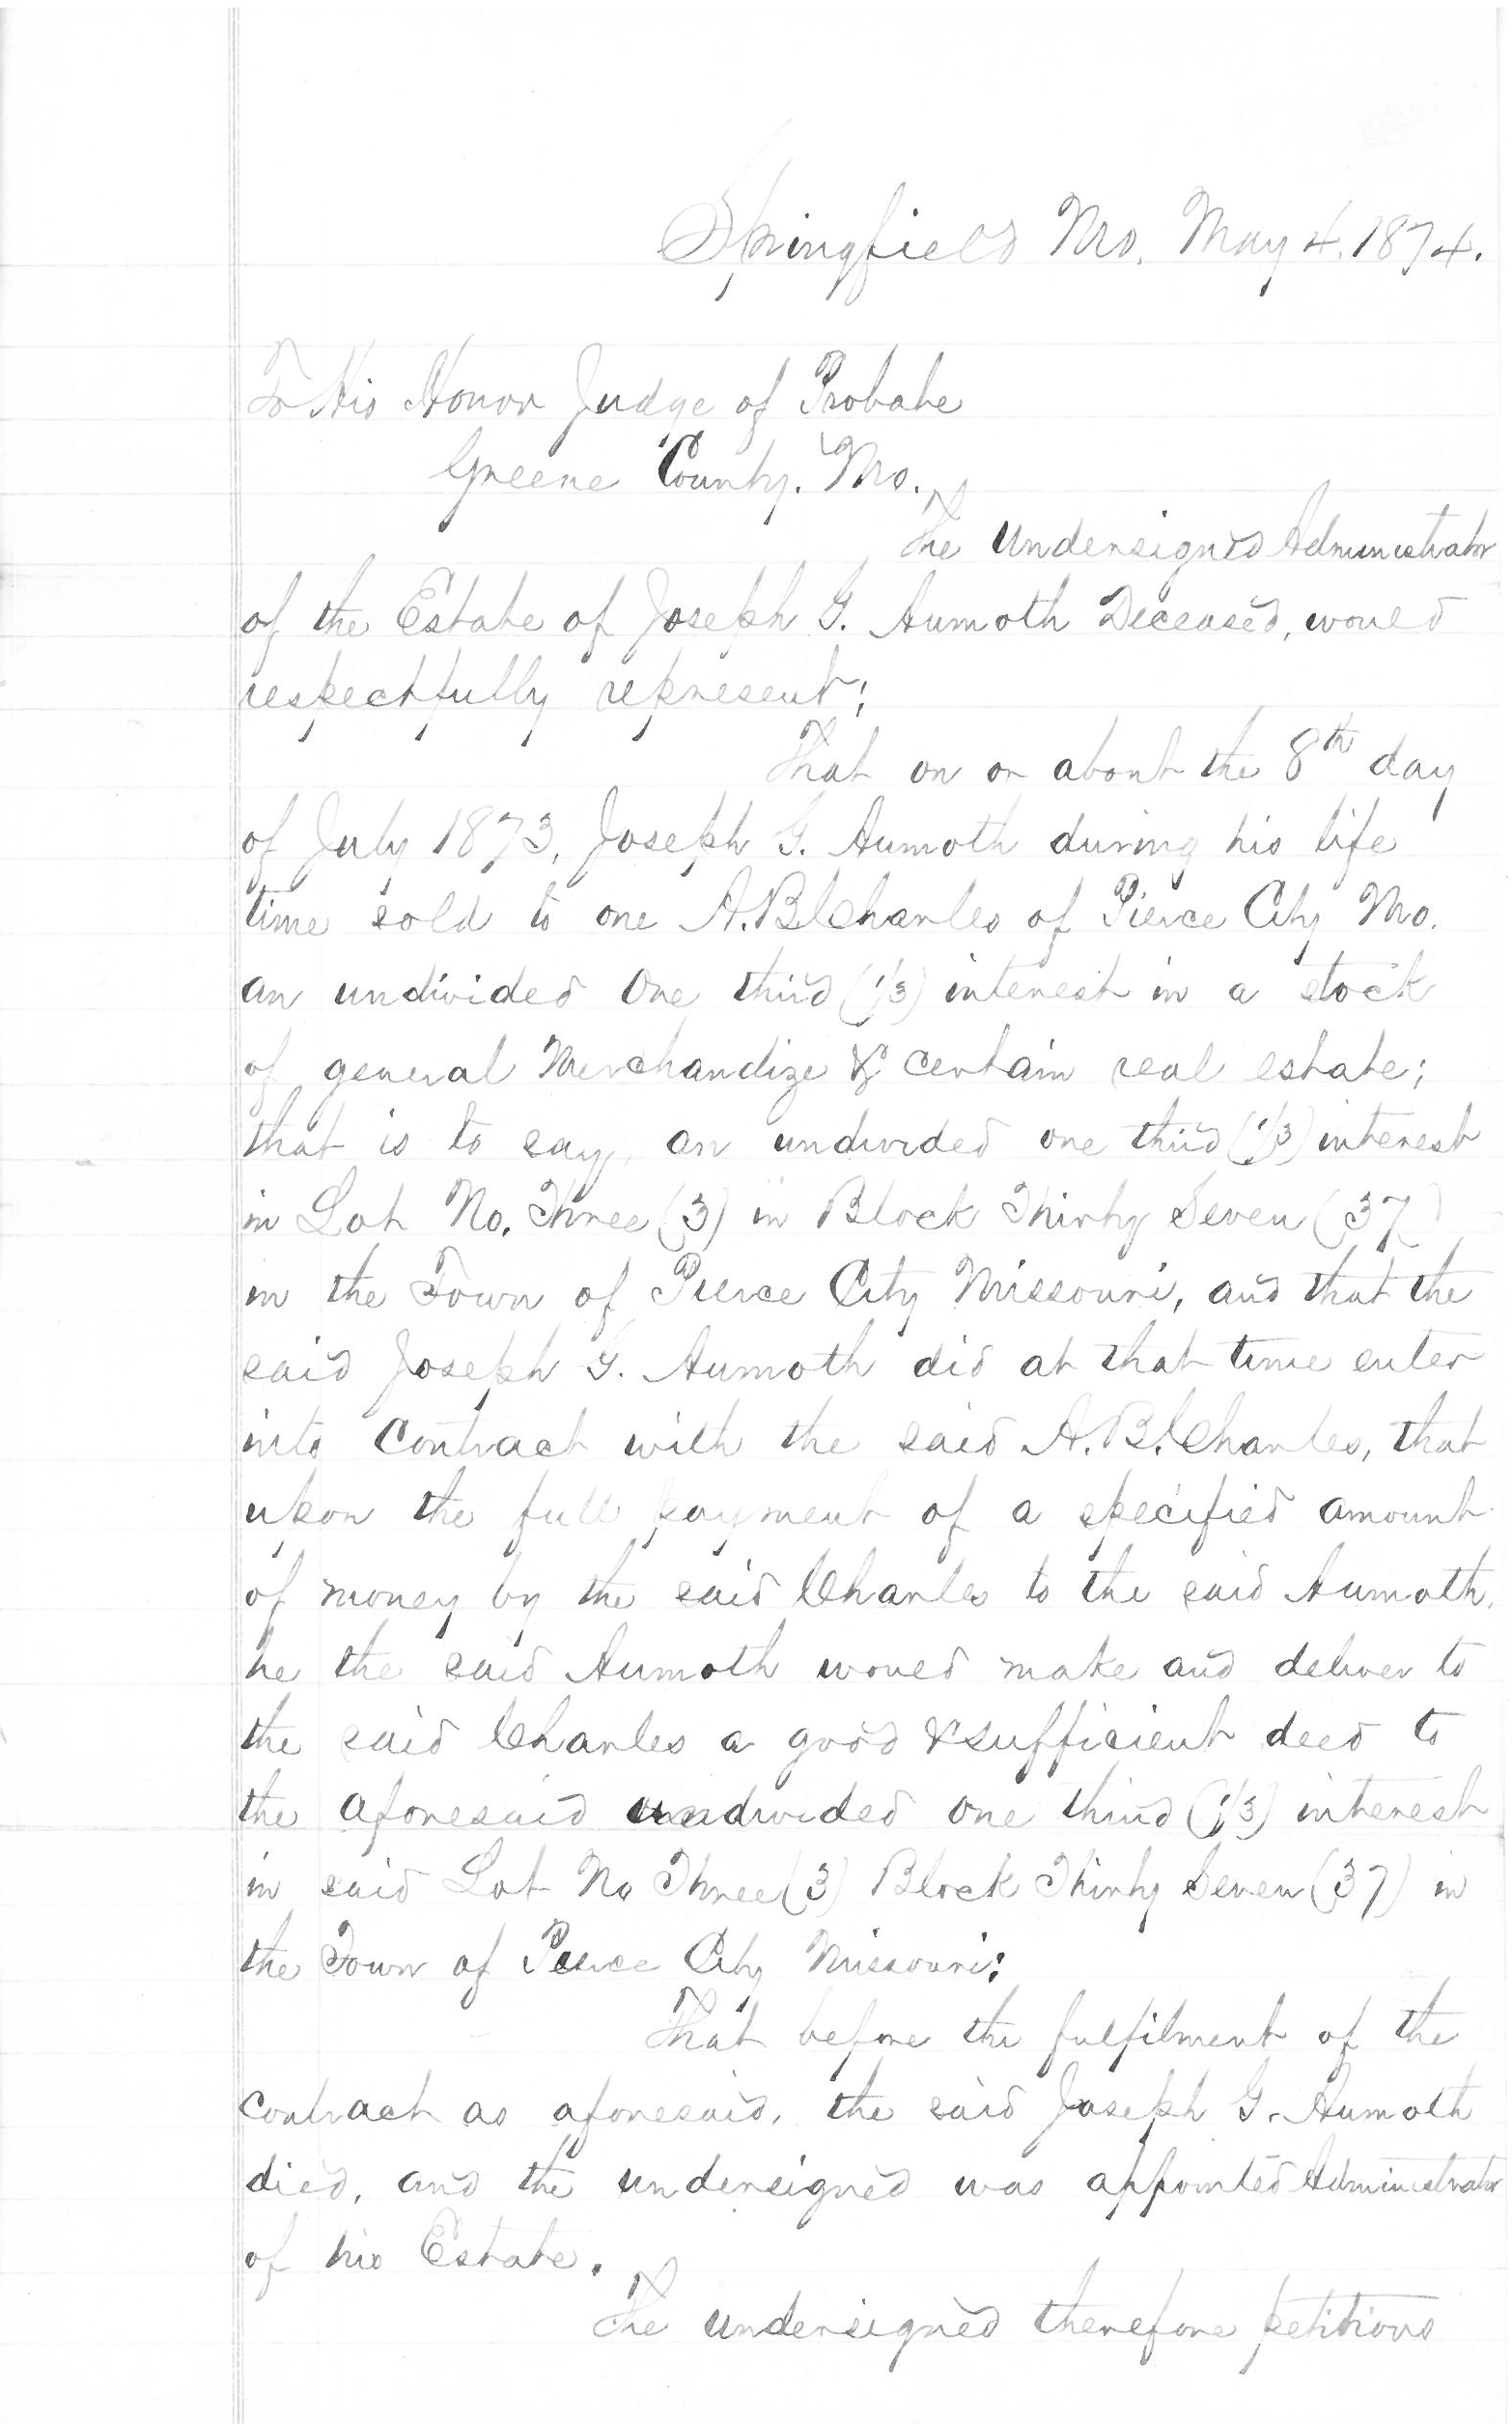 Springfield Mo. May 4. 1874.
To His Honor Judge of Probate
Greene County. Mo.
The undersigned Administrator
of the Estate of Joseph G. Aumoth Deceased, would
respectfully represent;
That on or about the 8th day
of July 1873, Joseph G. Aumoth during his life
time sold to one A.B. Charles of Pierce City Mo.
an undivided One third (1/3) interest in a stock
of general Merchandize & certain real estate;
that is to say, an undivided one third (1/3) interest
in Lot No. Three (3) in Block Thirty Seven (37)
in the Town of Pierce City Missouri, and that the
said Joseph G. Aumoth did at that time enter
into Contract with the said A.B. Charles, that
upon the full payment of a specified amount
of money by the said Charles to the said Aumoth,
he the said Aumoth would make and deliver to
the said Charles a good & sufficient deed to
the aforesaid undivided one third (1/3) interest
in said Lot No Three (3) Block Thirty Seven (37) in
the Town of Pierce City Missouri;
That before the fulfilment of the
Contract as aforesaid, the said Joseph G. Aumoth
died, and the undersigned was appointed Administrator
of his Estate.
The undersigned therefore petitions